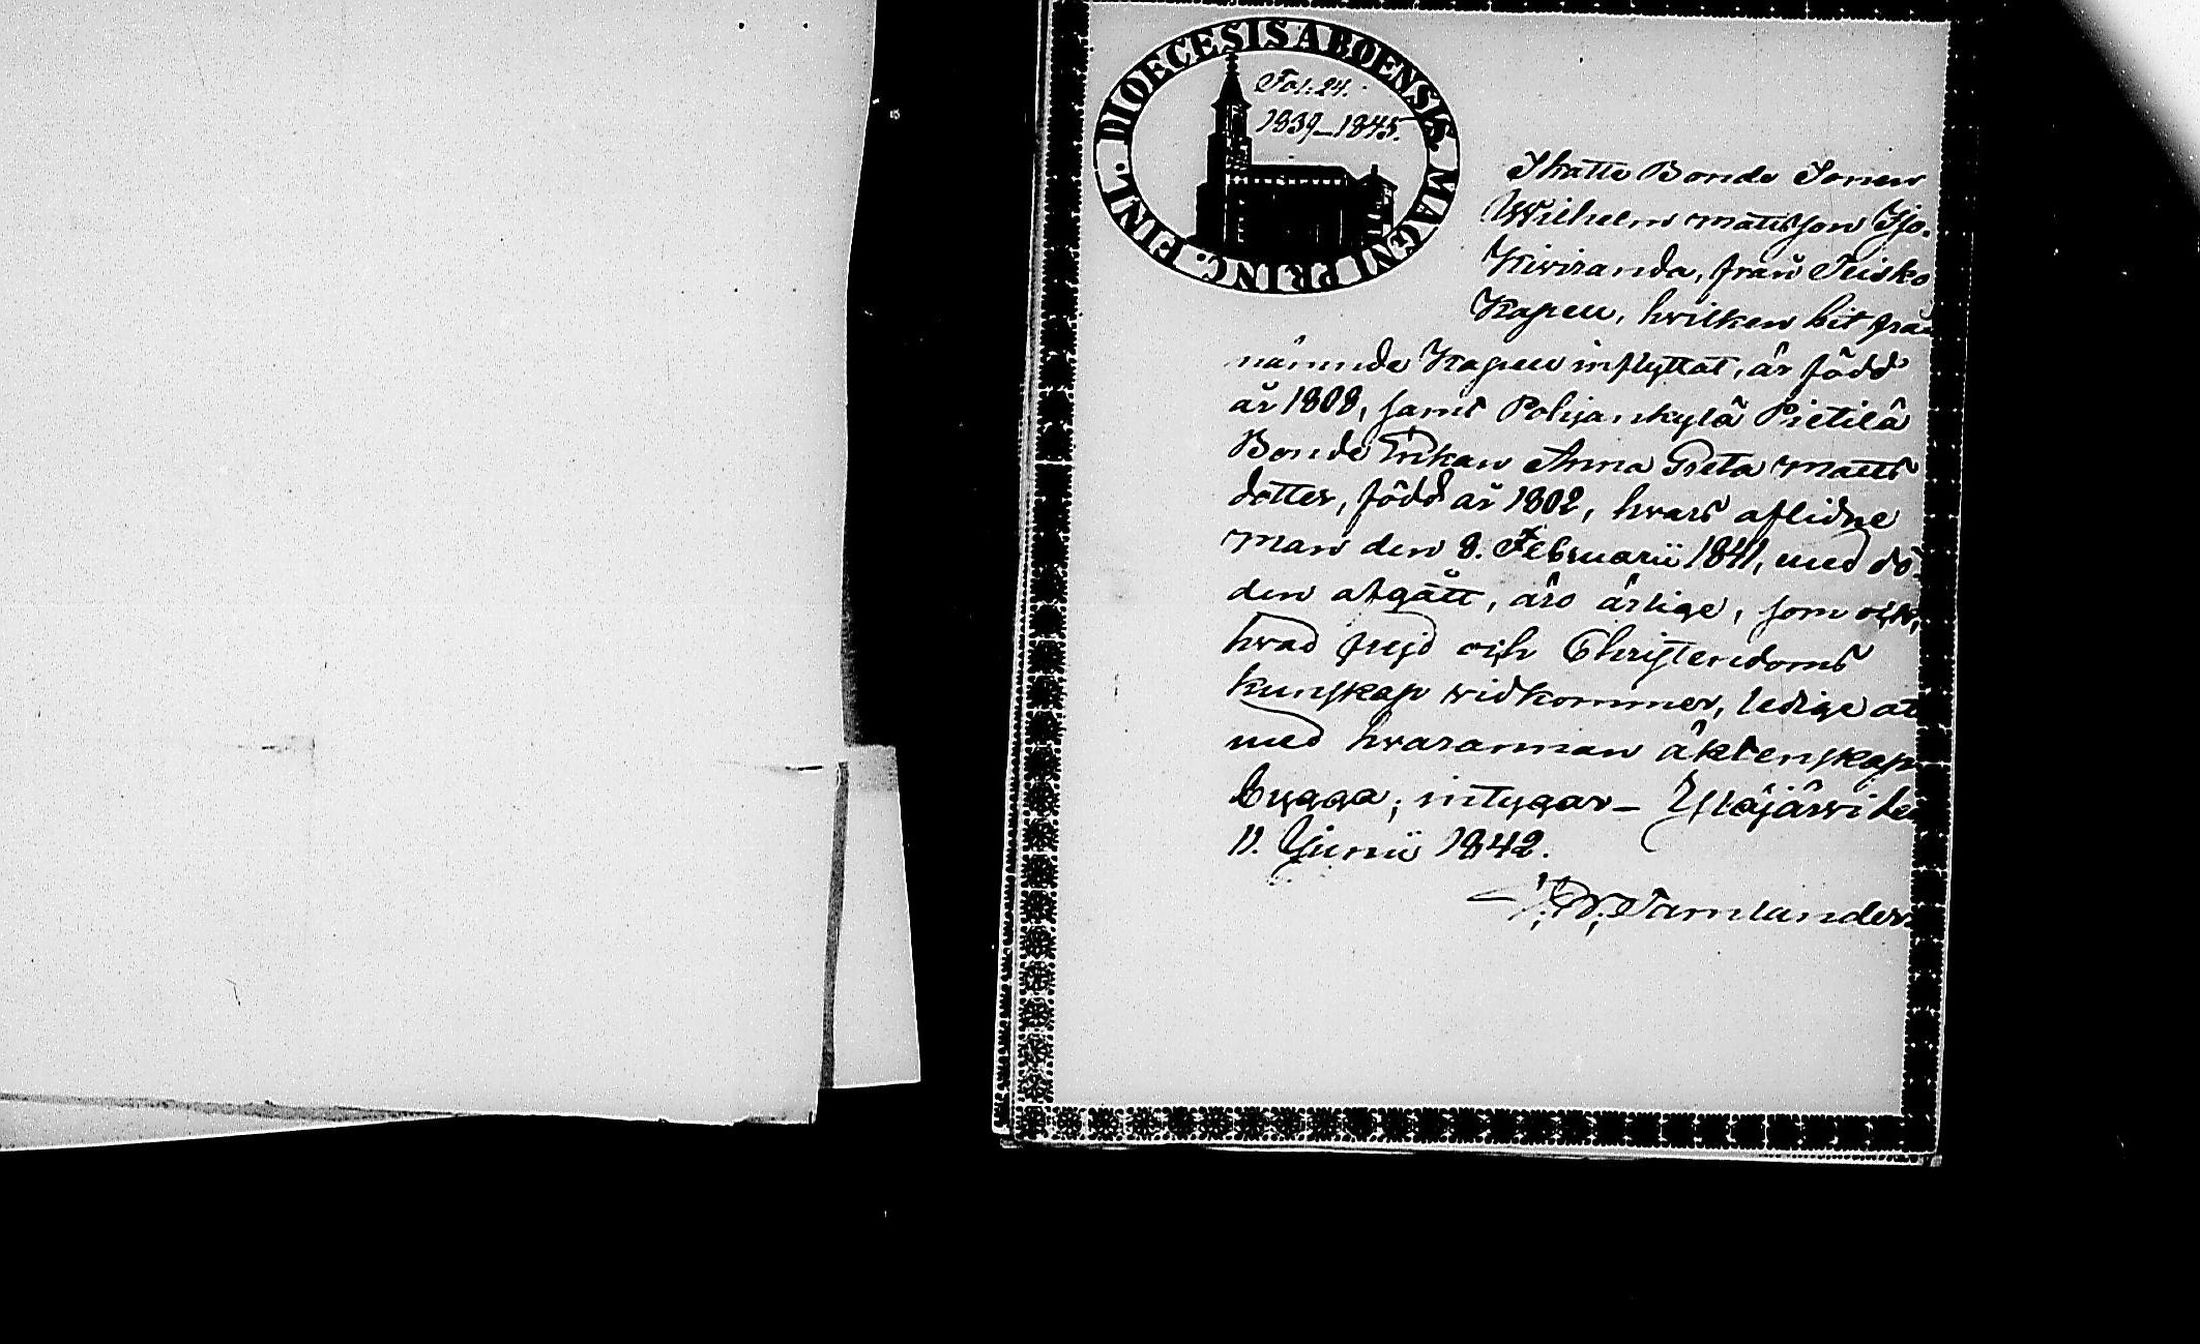 DIOECESIS ABOENSIS. MAGNI PRINC. FINL.
Fol. 24.
1839–1845.
Skatte Bonde Sonen
Wilhelm Mattsson Iso.
Kiviranda, från Teisko
Kapell, hvilken hit från
nämnde Kapell inflyttat, är född
år 1808, samt Pohjankylä Pietilä
Bonde Enkan Anna Greta Matts
dotter, född år 1802, hvars aflidne
man den 8. Februarii 1841, med dö
den afgått, äro ärlige, som ock,
hvad frejd och Christendoms
kunskap vidkommer, ledige at
med hvarannan äktenskap
bygga; intygar– Ylöjärvi den
11. Junii 1842.
Tamlander.